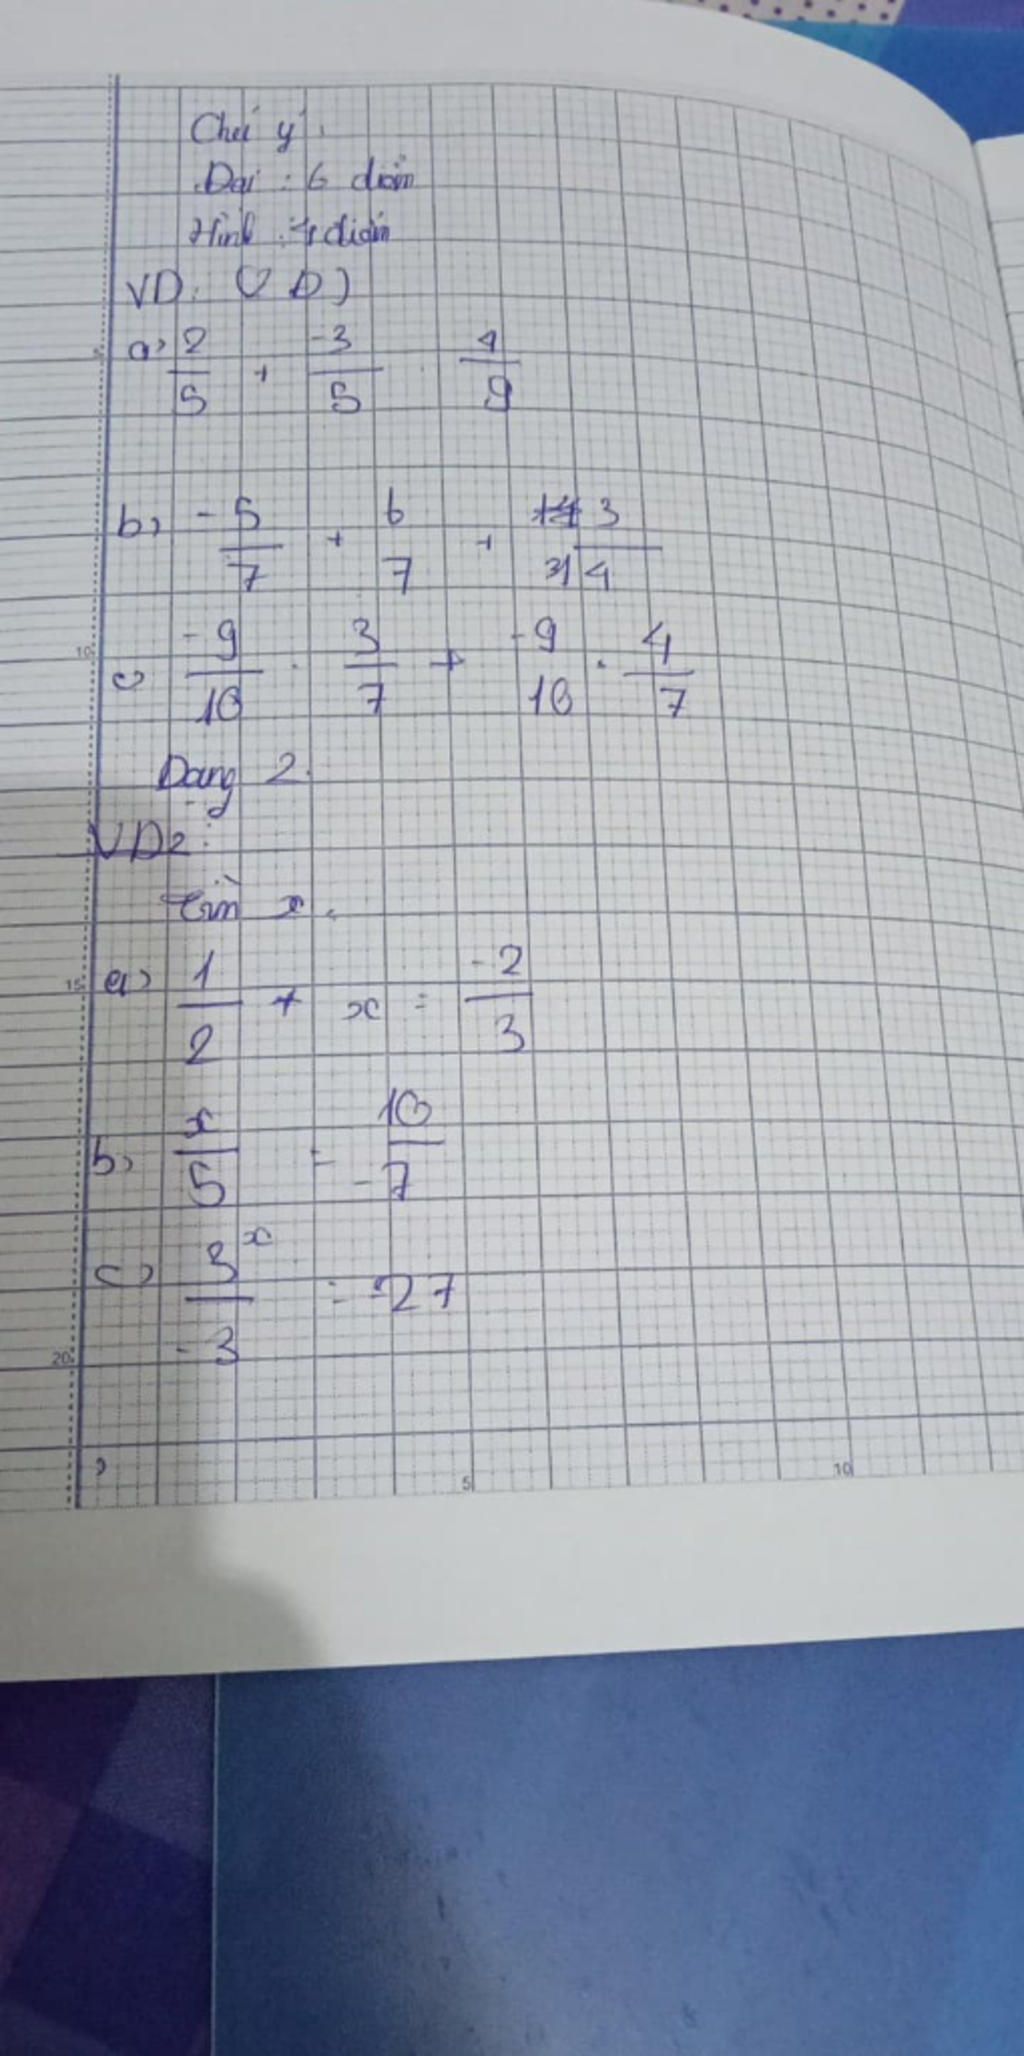 Chú ý:
Dại : 6 điểm
Hình : 4 điểm
VD: (VD)
a) 2/5 + -3/5 . 4/9
b) -5/7 + 6/7 + 3/4
c) -9/10 . 3/7 + -9/10 . 4/7
Dạng 2.
VD2:
tìm x.
a) 1/2 + x = -2/3
b) x/5 = 10/-7
c) 3^x/-3 = -27
5
10
15
20
5
10